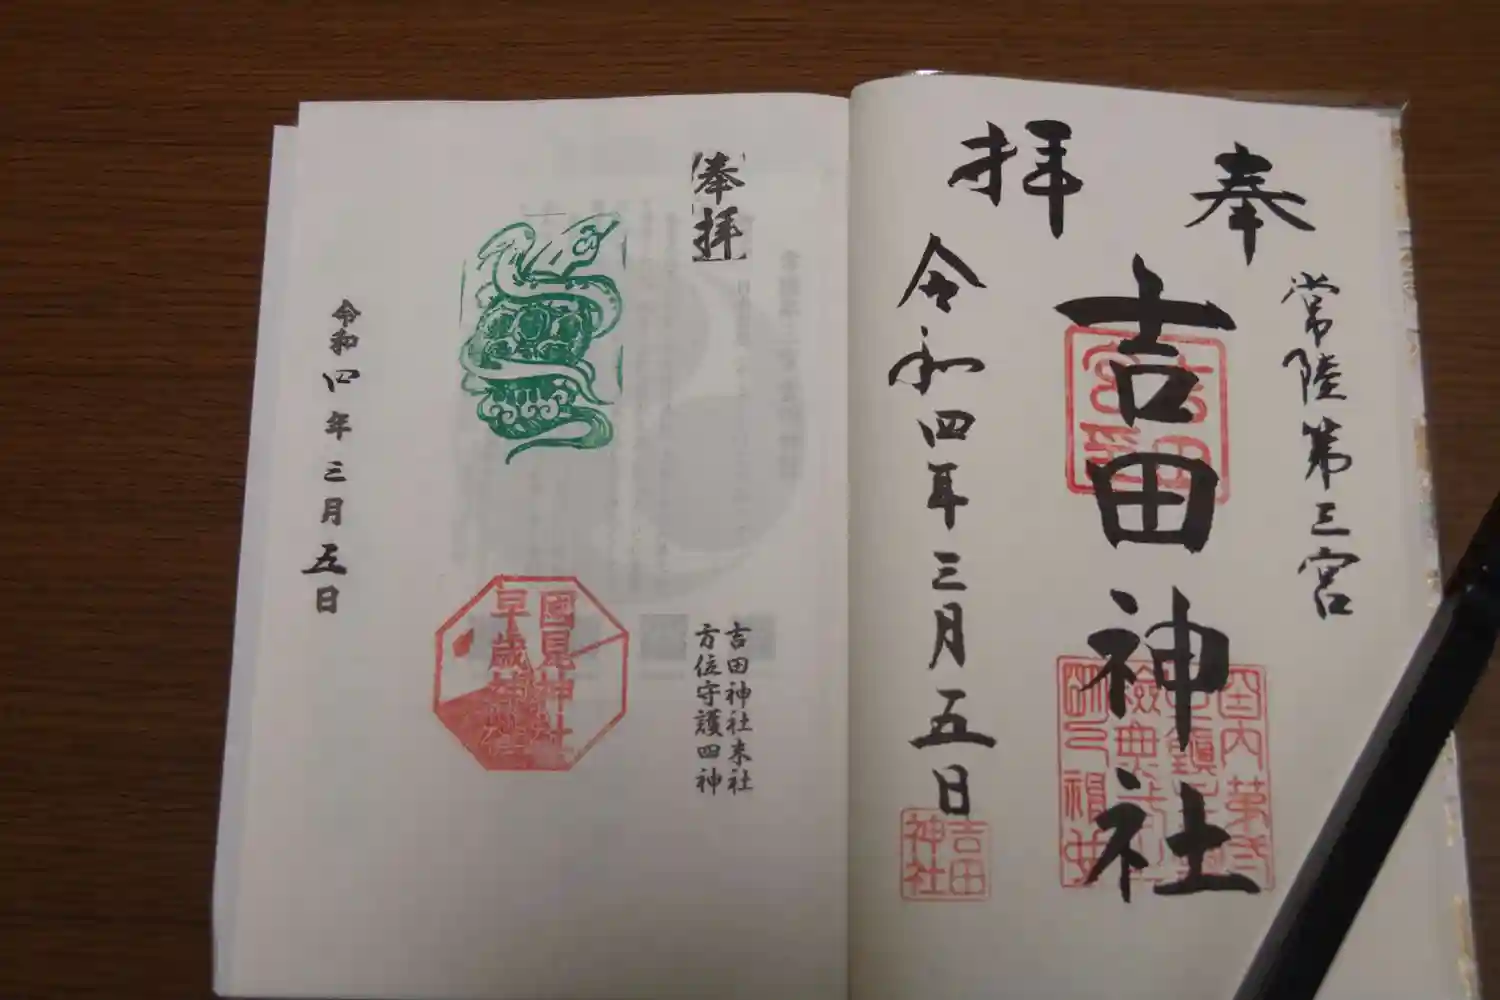 奉拝
常陸第三宮
吉田神社
令和四年三月五日
吉田
神社
奉拝
吉田神社末社
方位守護四神
國見神社
早歳神社
令和四年三月五日